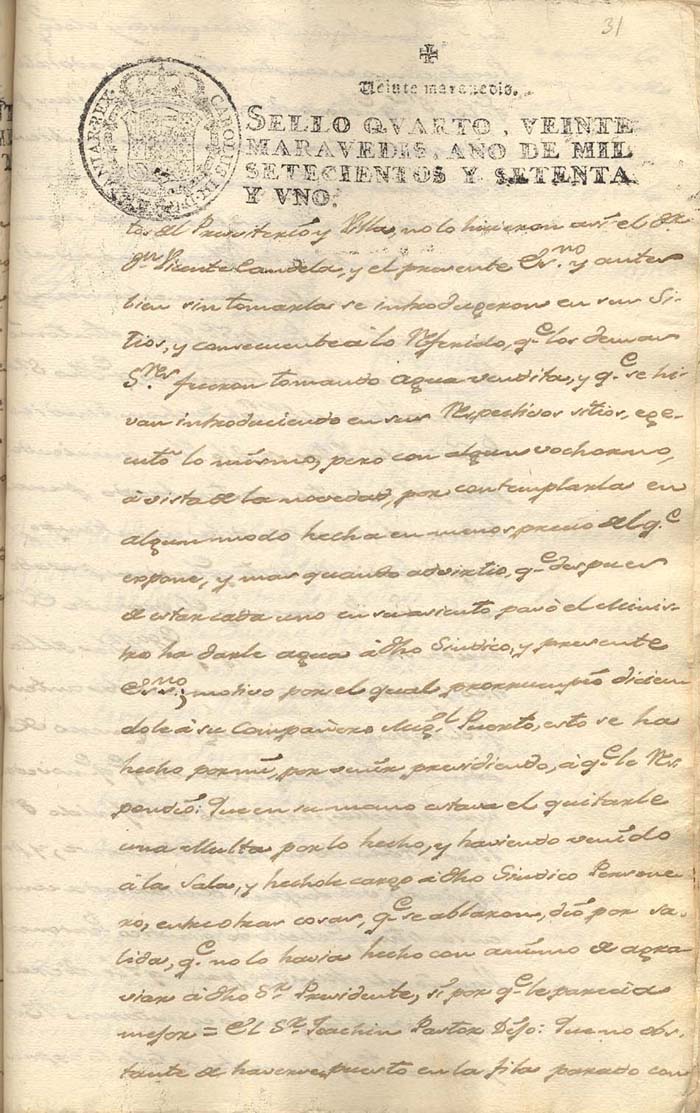 31
Veinte maravedis.
SELLO QVARTO, VEINTE
MARAVEDIS, AÑO DE MIL
SETECIENTOS Y SETENTA
Y VNO.
CAROLUS III D G HISPANIAR REX
tos del Presviterio y Pilla, no lo hicieron así el Dr
Dn Vicente Candela, y el presente Essno y antes
bien sin tomarla se introdugeron en sus Si-
tios, y consecuente à lo Referido, qe los demas
Sres fueron tomando agua vendita, y qe se hi-
van introduciendo en sus Respectivos sitios, ege-
cutó lo mismo, pero con algun vochorno,
à vista de la novedad, por contemplarla en
algun modo hecha en menos precio del qe
expone, y mas quando advirtio, qe despues
de estar cada uno en su asiento pasò el Minis-
tro ha darle agua à dho Sindico, y presente
Essno; motivo por el qual prorrumpió dicien-
dole à su Compañero Migl Puerto, esto se ha
hecho por mi, por venir presidiendo, à qe le Res-
pondió: Que en su mano estava el quitarle
una Multa por lo hecho, y haviendo venido
à la Sala, y hechole cargo à dho Sindico Persone-
ro, entre otras cosas, qe se ablaron, dió por sa-
lida, qe no lo havia hecho con animo de agra-
viar à dho Sr Presidente, si por qe le parecia
mejor = El Sr Joachin Pastor Dijo: Que no obs-
tante de haverse puesto en la fila parado con